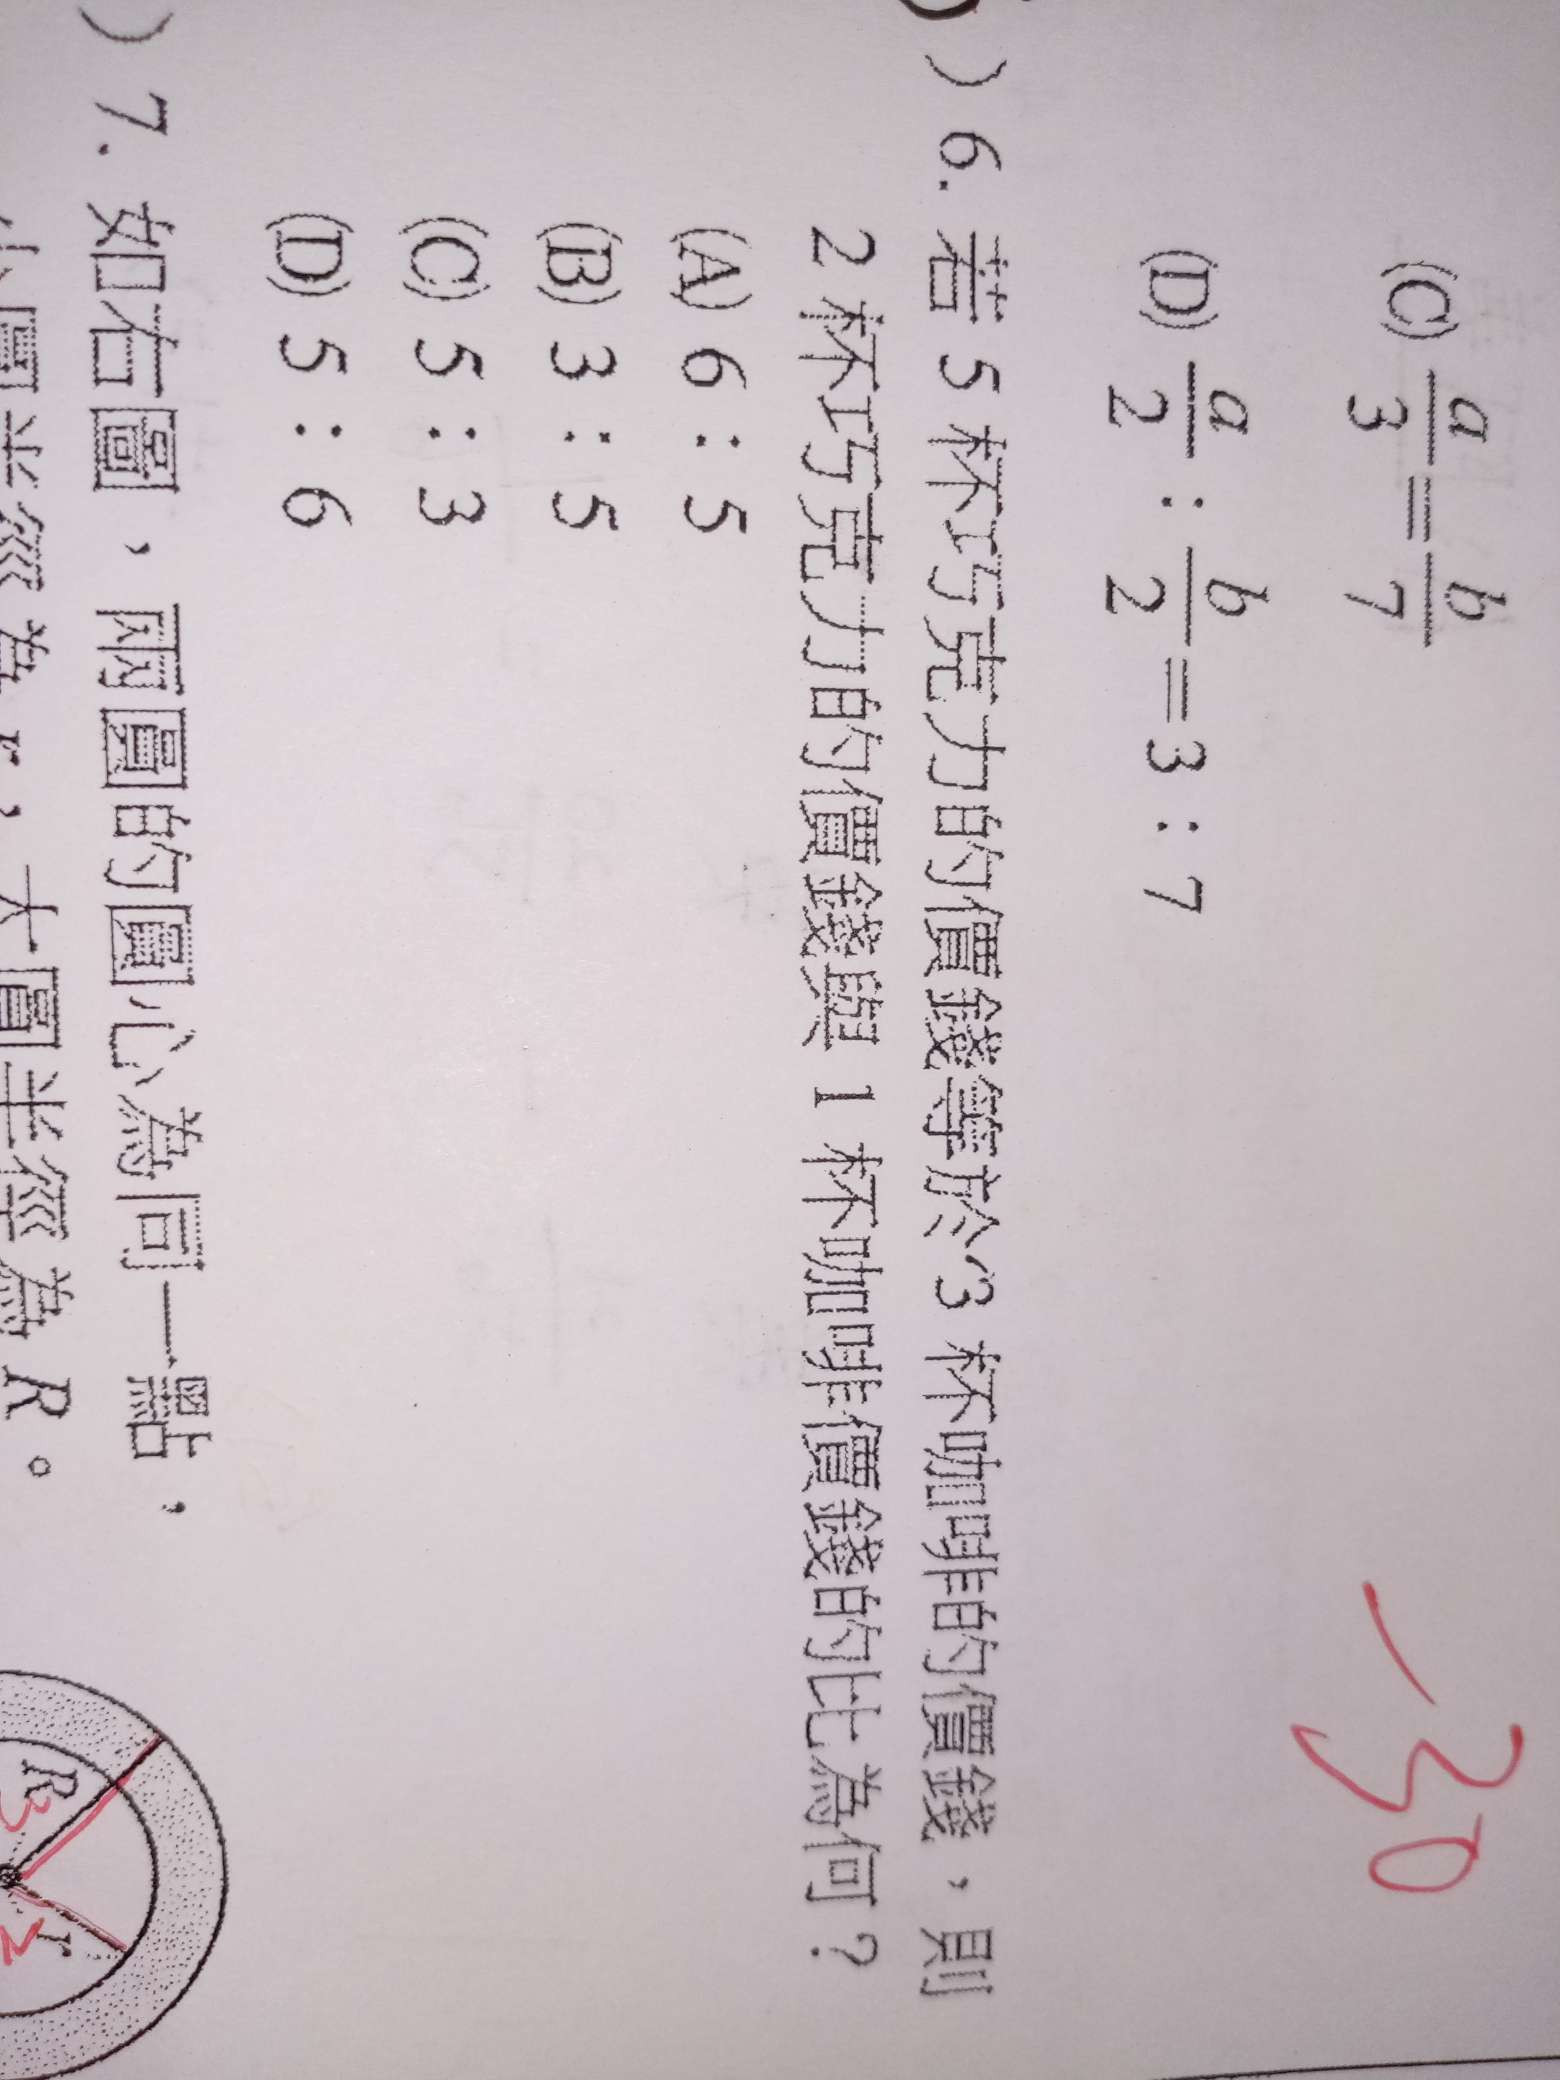 (C) a/3 = b/7
(D) a/2 : b/2 = 3 : 7
-30
) 6. 若 5 杯巧克力的價錢等於 3 杯咖啡的價錢，則
2 杯巧克力的價錢與 1 杯咖啡價錢的比為何？
(A) 6 : 5
(B) 3 : 5
(C) 5 : 3
(D) 5 : 6
) 7. 如右圖，兩圓的圓心為同一點，
小圓半徑為 r、大圓半徑為 R。
R 3
r 2